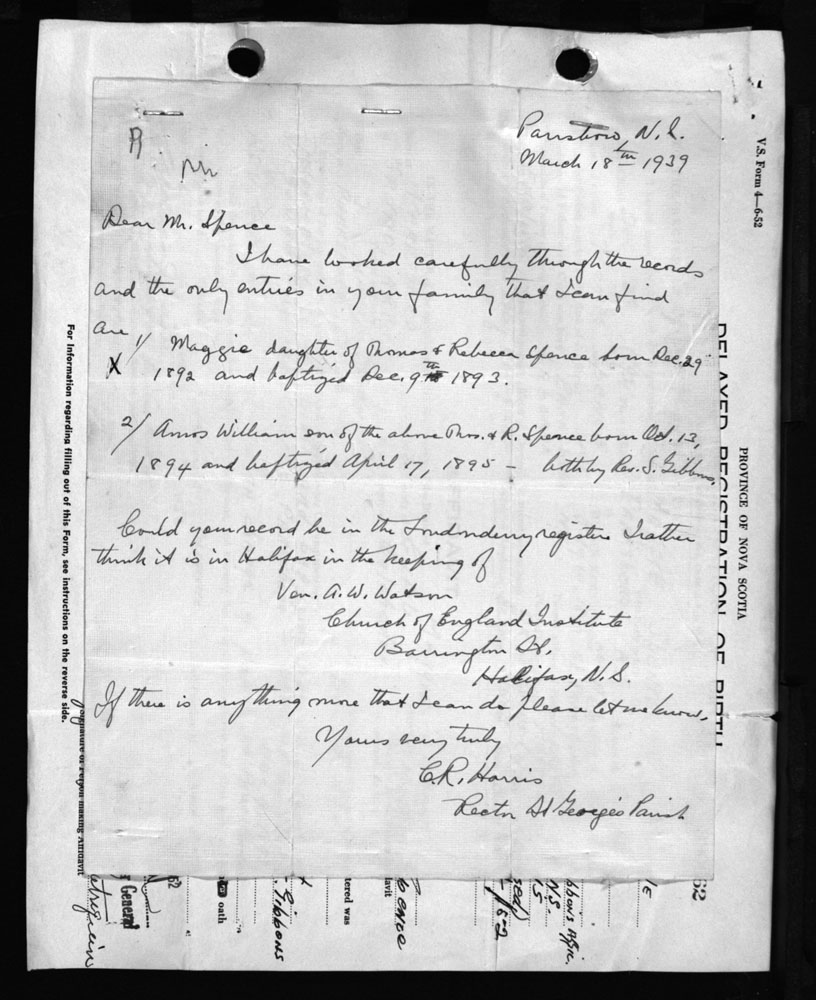 Parrsboro, N.S.
March 18th 1939
Dear Mr. Spence
I have looked carefully through the records
and the only entries in your family that I can find
are 1/ Maggie daughter of Thomas & Rebecca Spence born Dec. 29
X 1892 and baptized Dec. 9th 1893.
2/ Amos William son of the above Thos. & R. Spence born Oct. 13,
1894 and baptized April 17, 1895 – both by Rev. S. Gibbons.
Could your record be in the Londonderry register I rather
think it is in Halifax in the keeping of
Ven. A. W. Watson
Church of England Institute
Barrington St.
Halifax, N.S.
If there is anything more that I can do please let me know.
Yours very truly
C.R. Harris
Rector St George's Parish
V.S. Form 4—6-52
PROVINCE OF NOVA SCOTIA
DELAYED REGISTRATION OF BIRTH
For information regarding filling out of this Form, see instructions on the reverse side.
Signature of Person making Affidavit
r General
52
oath
Gibbons
tered was
davit
52